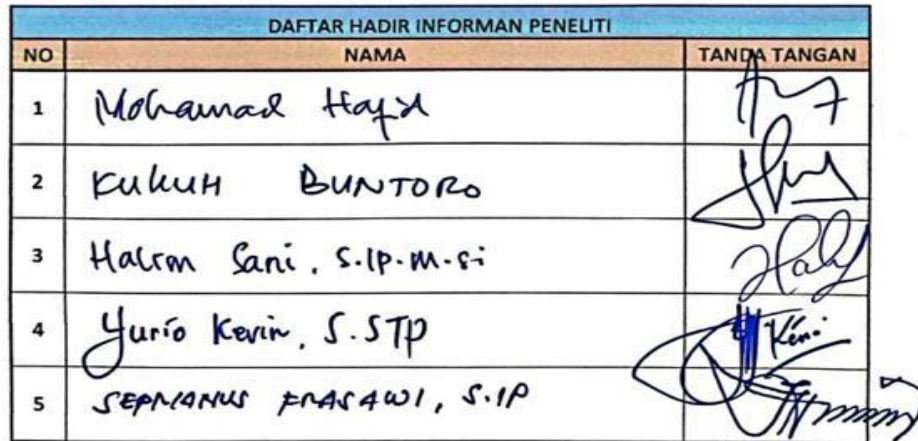 DAFTAR HADIR INFORMAN PENELITI
NO NAMA TANDA TANGAN
1 Mohamad Hafid
2 KUKUH BUNTORO
3 Halim Sani, S.IP.M.Si
4 Yurio Kevin, S.STP
5 S.IP